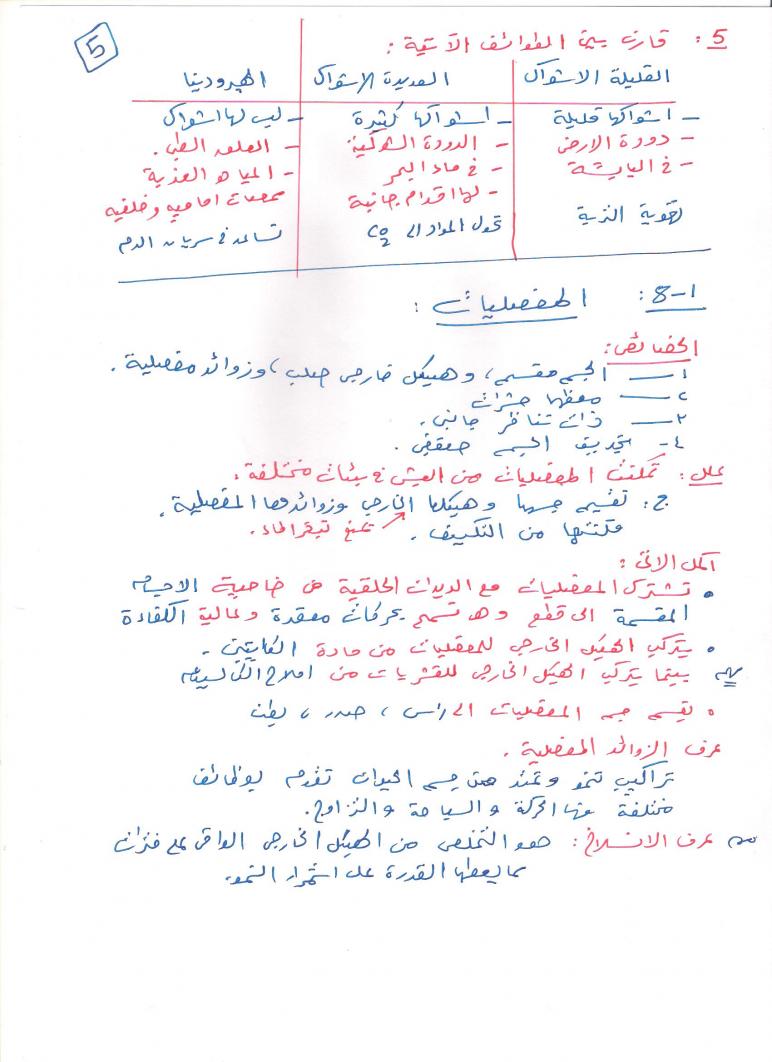 5
5: قارن بين الطوائف الآتية:
القليلة الاشواك | العديدة الاشواك | الهيرودينا
- اشواكها قليلة | - اشواكها كثيرة | - ليس لها اشواك
- دودة الارض | - الدودة الشوكية | - العلق الطبي.
- في اليابسة | - في ماء البحر | - المياه العذبة
- لها اقدام جانبية | ممصات اماميه وخلفيه
تهوية التربة | تحول المواد الى CO2 | تساعد في سريان الدم
8-1: المفصليات:
الخصائص:
1- الجسم مقسم، وهيكل خارجي صلب، وزوائد مفصلية.
2- معظمها حشرات
3- ذات تناظر جانبي.
4- تجويف الجسم حقيقي.
علل: تمكنت المفصليات من العيش في بيئات مختلفة.
ج: تقسيم جسمها وهيكلها الخارجي وزوائدها المفصلية.
مكنتها من التكيف. تمنع تبخر الماء.
اكمل الاتي:
• تشترك المفصليات مع الديدان الحلقية في خاصية الاجسام
المقسمة الى قطع وهو تسمح بحركات معقدة وعالية الكفاءة
• يتركب الهيكل الخارجي للمفصليات من مادة الكايتين.
بينما يتركب الهيكل الخارجي للقشريات من املاح الكالسيوم
• يقسم جسم المفصليات الى راس، صدر، بطن
عرف الزوائد المفصلية.
تراكيب تنمو وتمتد من جسم الحيوان تقوم بوظائف
مختلفة منها الحركة والسباحة والتزاوج.
عرف الانسلاخ: هو التخلص من الهيكل الخارجي الواقي على فترات
مما يعطيها القدرة على استمرار النمو.